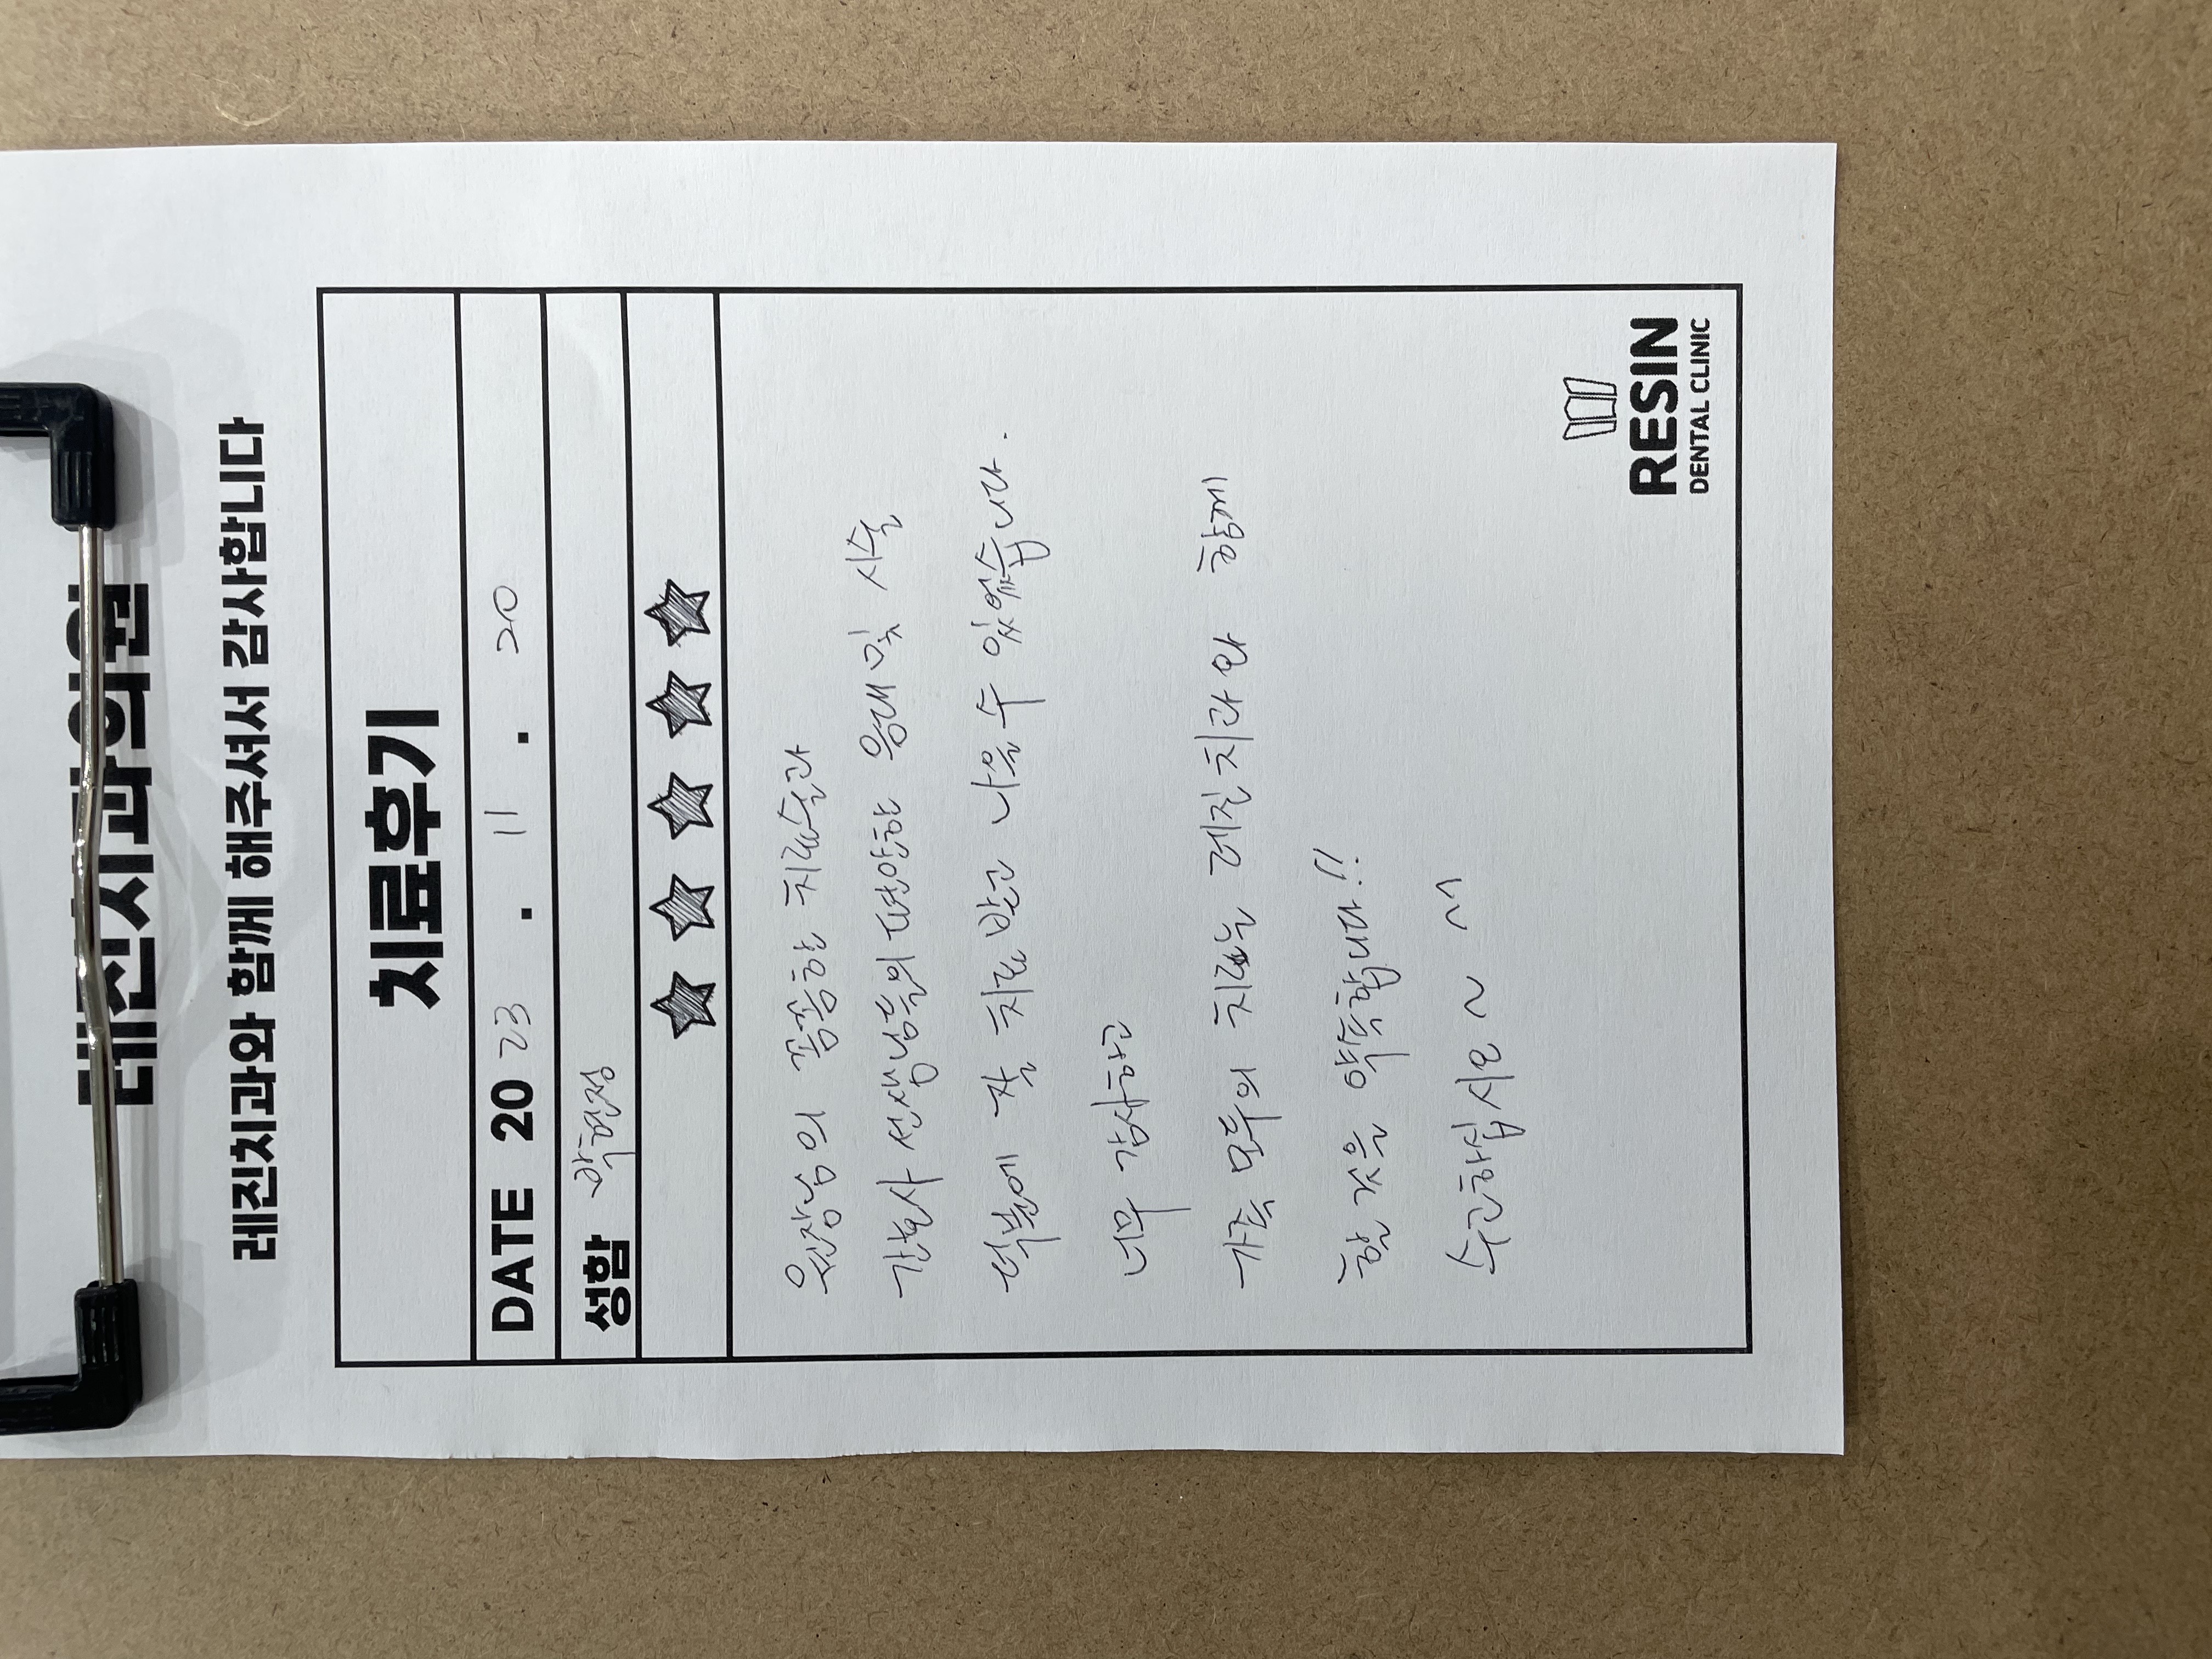 레진치과의원
레진치과와 함께 해주셔서 감사합니다
치료후기
DATE 2023 . 11 . 20
성함 박현정
★ ★ ★ ★ ★
원장님의 꼼꼼한 치료술과
간호사 선생님들의 편안한 응대 및 시술
덕분에 잘 치료받고 나올 수 있었습니다.
너무 감사하고
가족 모두의 치료는 레진치과와 함께
할 것을 약속합니다!!
수고하십시오~ ~
RESIN
DENTAL CLINIC